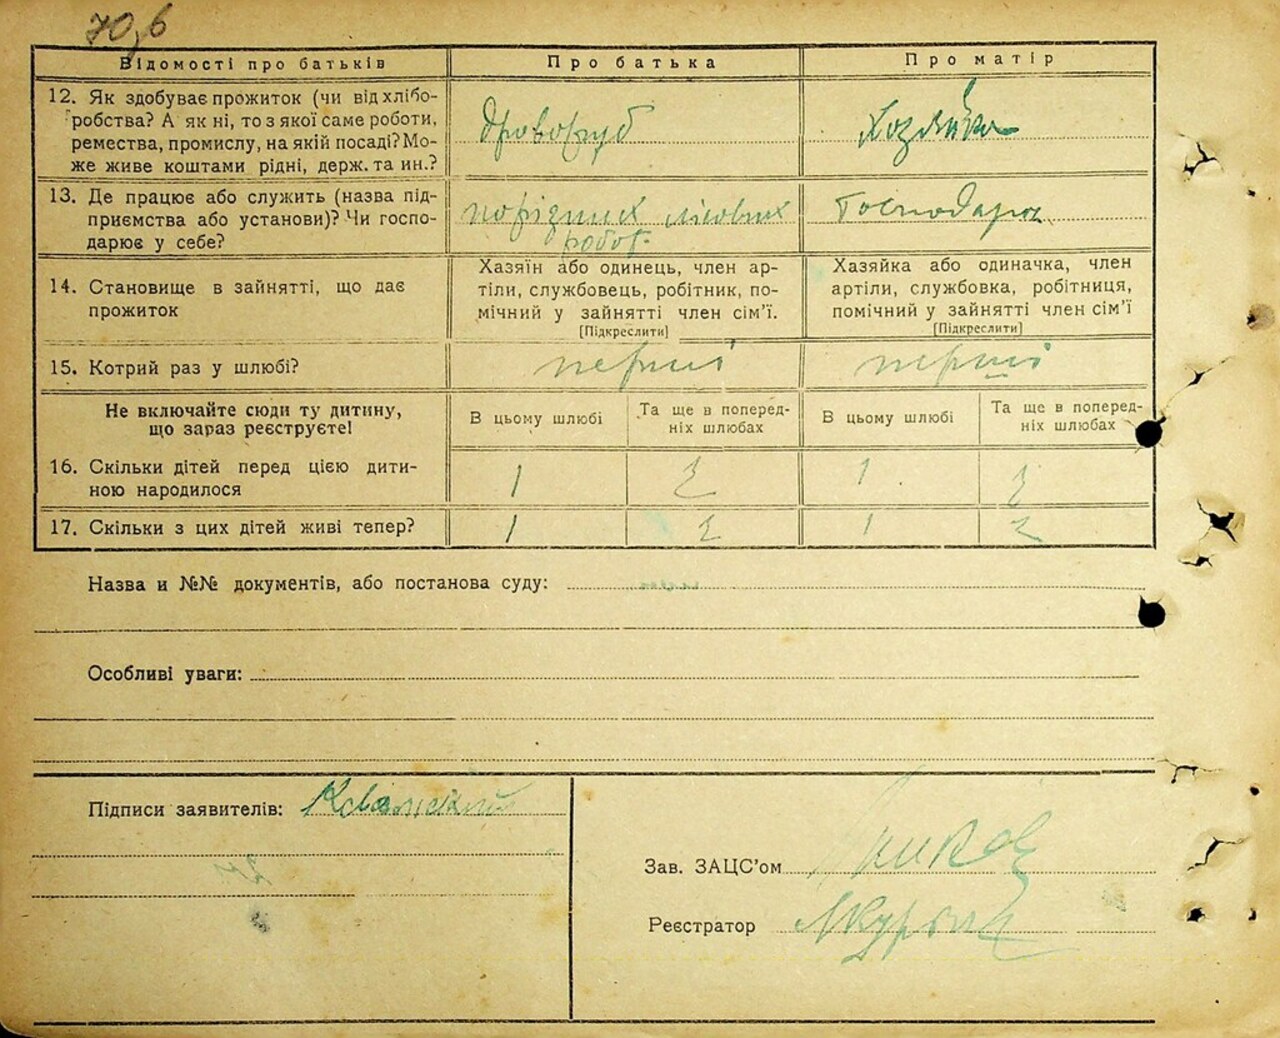 70,6
Відомості про батьків
Про батька
Про матір
12. Як здобуває прожиток (чи від хлібо-
робства? А як ні, то з якої саме роботи,
ремества, промислу, на якій посаді? Мо-
же живе коштами рідні, держ. та ин.?
дроворуб
Хозяйка
13. Де працює або служить (назва під-
приємства або установи)? Чи госпо-
дарює у себе?
по різних лісових
робот
14. Становище в зайнятті, що дає
прожиток
Хазяїн або одинець, член ар-
тіли, службовець, робітник, по-
мічний у зайнятті член сім'ї.
[Підкреслити]
Хазяйка або одиначка, член
артіли, службовка, робітниця,
помічний у зайнятті член сім'ї
[Підкреслити]
15. Котрий раз у шлюбі?
перший
перший
Не включайте сюди ту дитину,
що зараз реєструєте!
В цьому шлюбі
Та ще в поперед-
ніх шлюбах
В цьому шлюбі
Та ще в поперед-
ніх шлюбах
16. Скільки дітей перед цією дити-
ною народилося
1
1
17. Скільки з цих дітей живі тепер?
1
1
Назва и №№ документів, або постанова суду:
Особливі уваги:
Підписи заявителів:
Зав. ЗАЦС'ом
Реєстратор